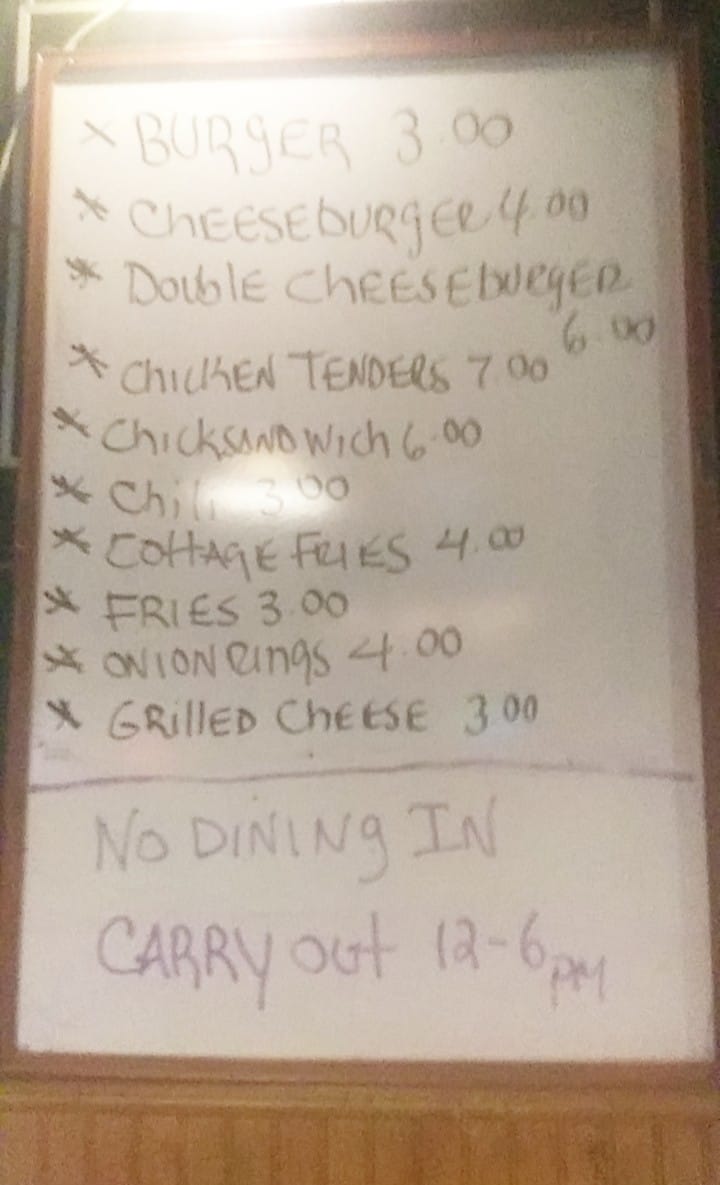 * BURGER 3.00
* CHEESEBURGER 4.00
* DOUBLE CHEESEBURGER
6.00
* CHICKEN TENDERS 7.00
* CHICKSANDWICH 6.00
* Chili 3.00
* COTTAGE FRIES 4.00
* FRIES 3.00
* ONION RINGS 4.00
* GRILLED CHEESE 3.00
NO DINING IN
CARRY OUT 12-6PM